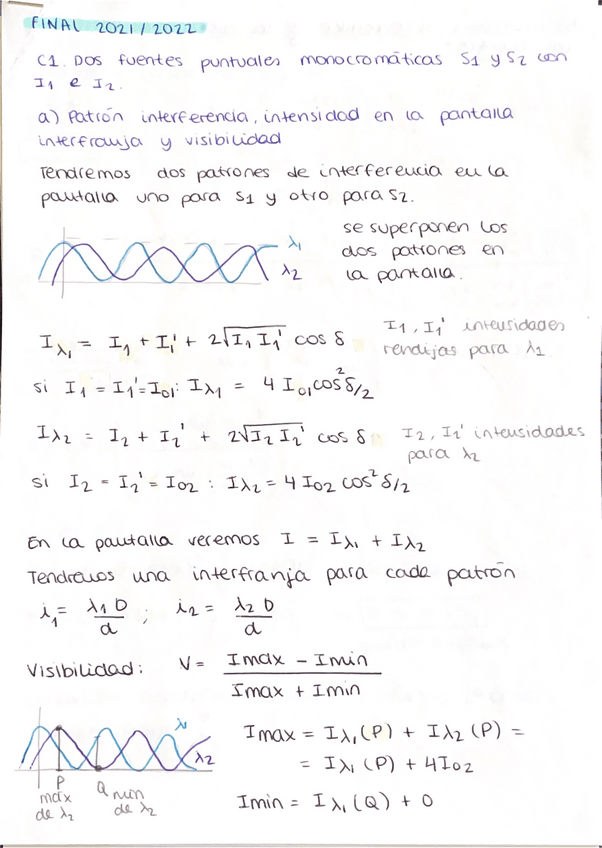 FINAL 2021/2022
C1. Dos fuentes puntuales monocromáticas S1 y S2 con
I1 e I2.
a) Patrón interferencia, intensidad en la pantalla
interfranja y visibilidad
Tendremos dos patrones de interferencia en la
pantalla uno para S1 y otro para S2.
λ1
λ2
se superponen los
dos patrones en
la pantalla.
Iλ1 = I1 + I1' + 2√(I1 I1') cos δ
I1, I1' intensidades
rendijas para λ1
si I1 = I1' = I01: Iλ1 = 4 I01 cos² δ/2
Iλ2 = I2 + I2' + 2√(I2 I2') cos δ
I2, I2' intensidades
para λ2
si I2 = I2' = I02 : Iλ2 = 4 I02 cos² δ/2
En la pantalla veremos I = Iλ1 + Iλ2
Tendremos una interfranja para cada patrón
i1 = λ1 D / d ; i2 = λ2 D / d
Visibilidad: V = (Imax - Imin) / (Imax + Imin)
λ1
λ2
P
max
de λ2
Q
min
de λ2
Imax = Iλ1 (P) + Iλ2 (P) =
= Iλ1 (P) + 4I02
Imin = Iλ1 (Q) + 0